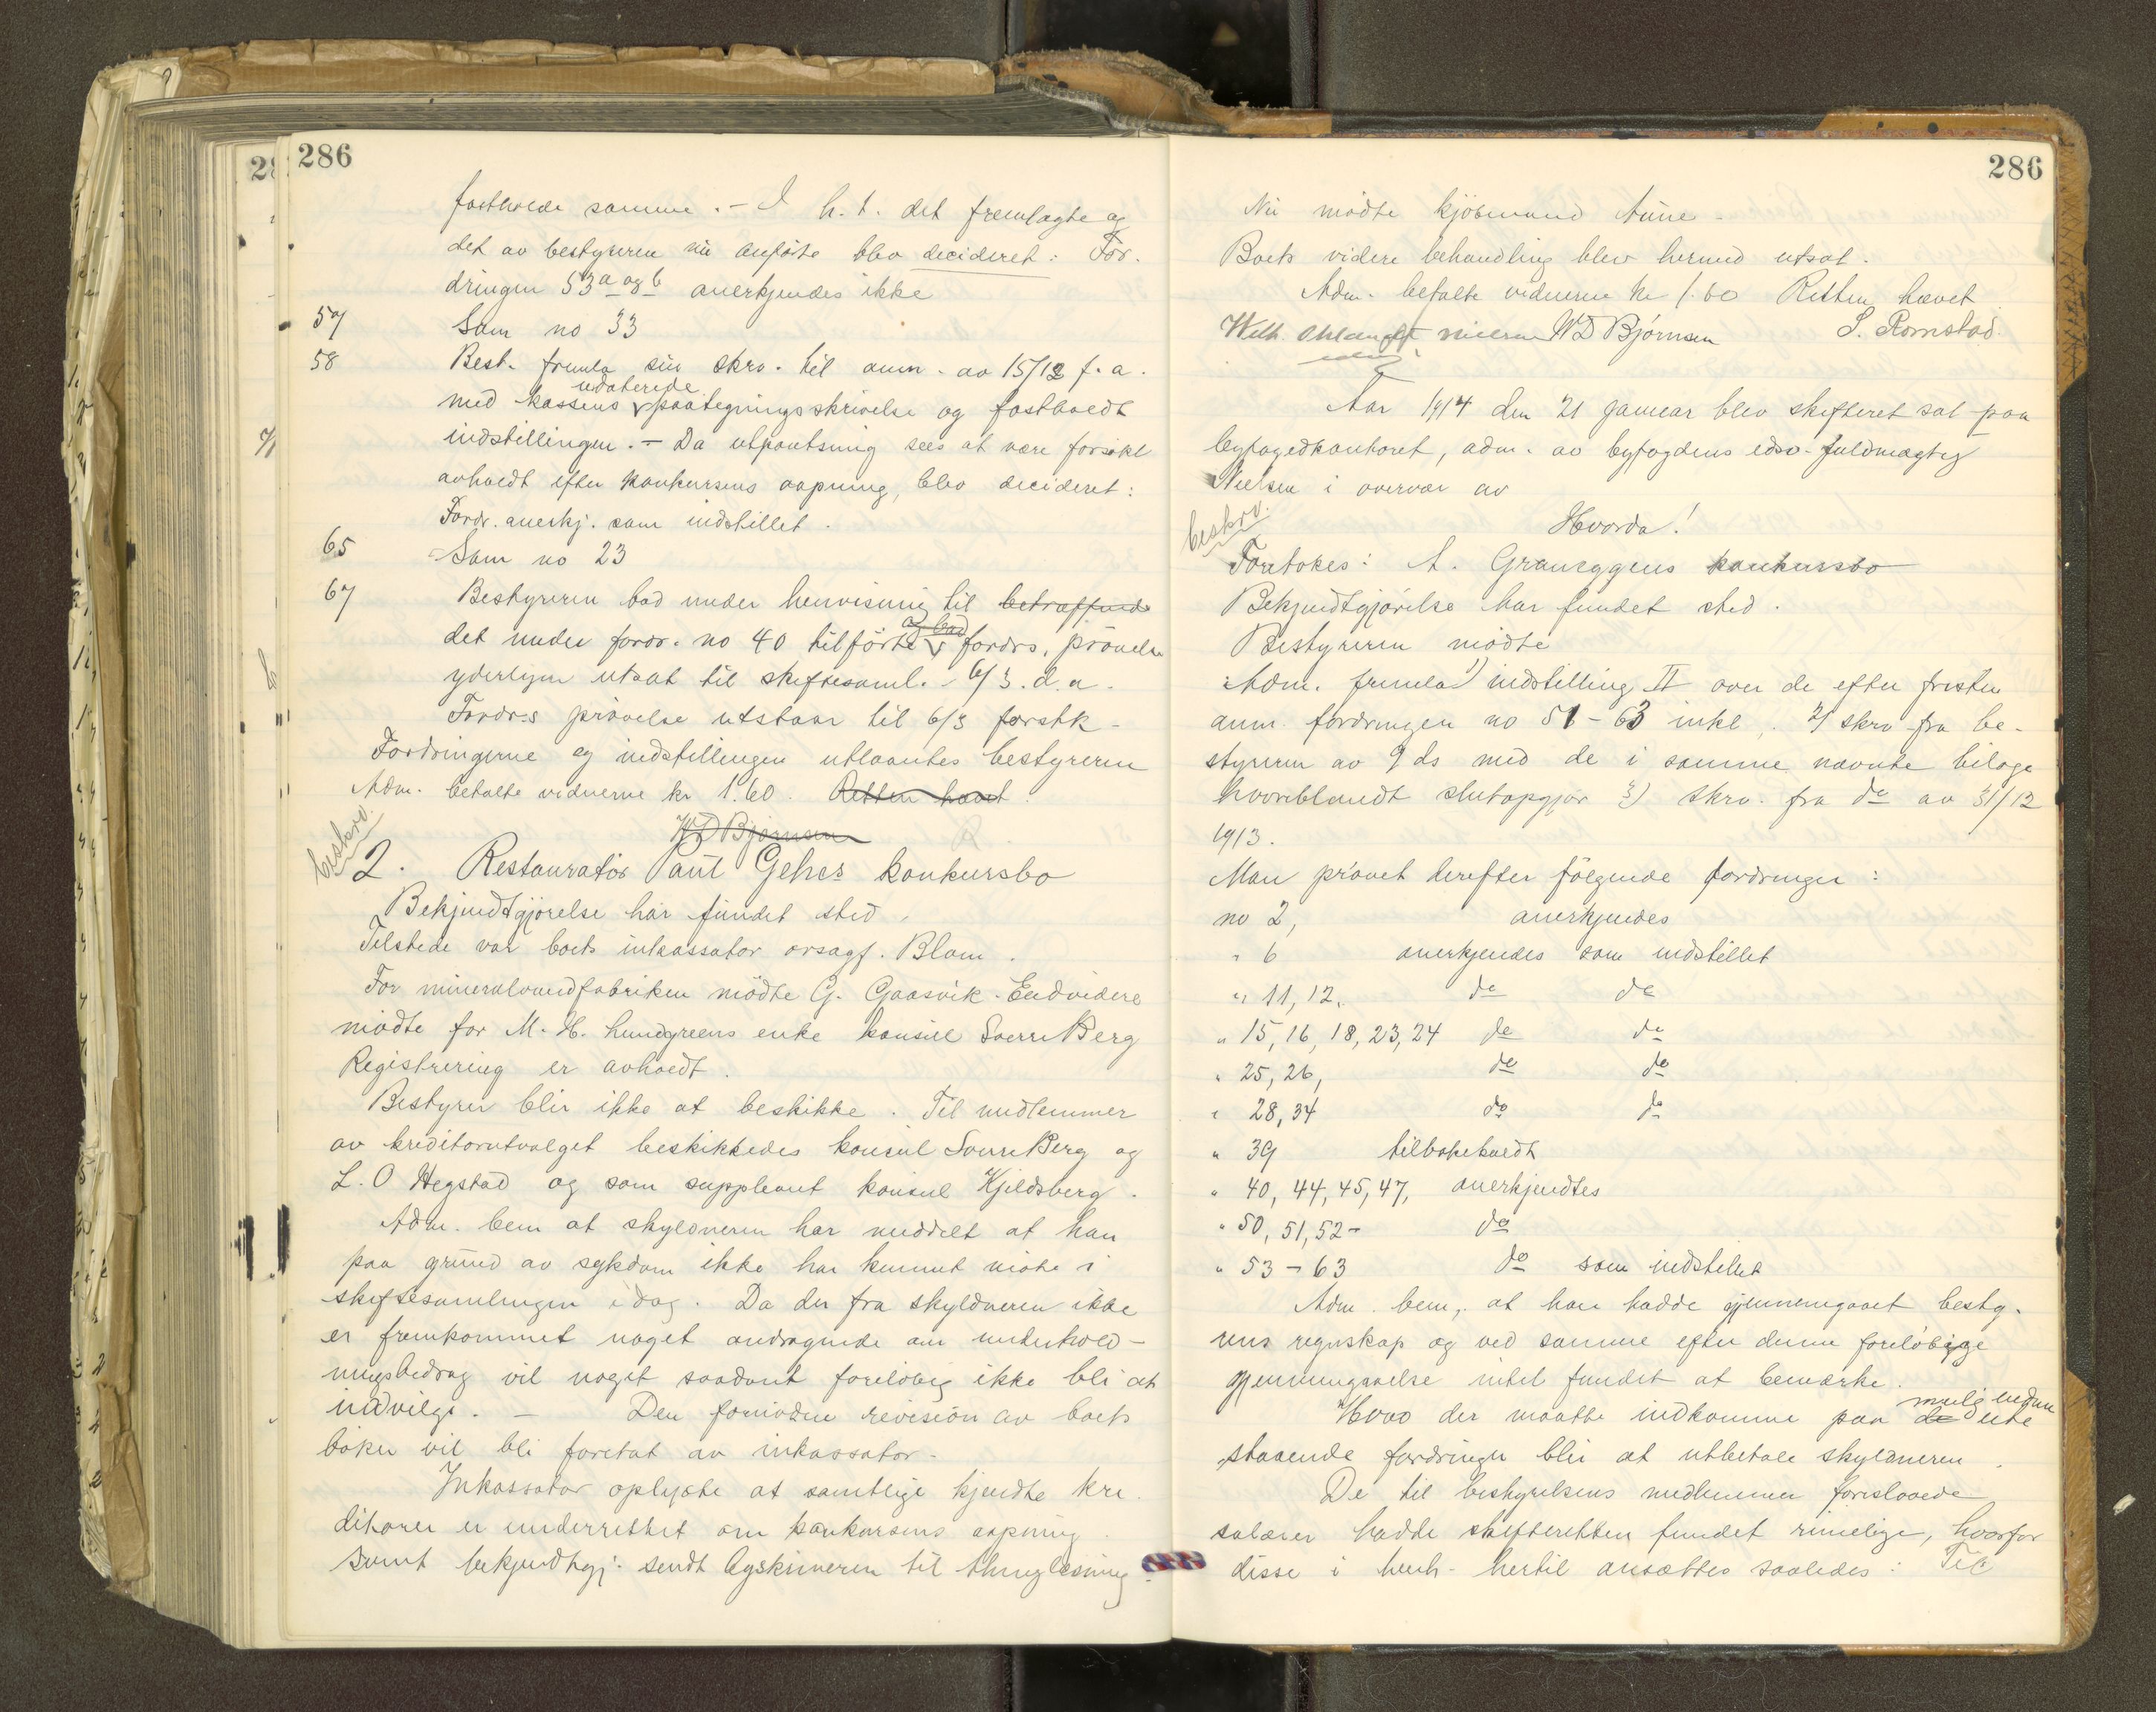 286
fastholde samme. – I h. t. det fremlagte og
det av bestyreren nu anførte blev decideret: For-
dringen 53 a og b anerkjendes ikke
57 Som no 33
58 Best. fremla sin skrv. til anm. av 15/12 f. a.
med kassens udaterede paategningsskrivelse og fastholdt
indstillingen. – Da utpantning sees at være forsøkt
avholdt efter konkursens aapning, blev decideret:
Fordr. anerkj. som indstillet.
65 Som no 23
67 Bestyreren bad under henvisning til betræffende
det under fordr. no 40 tilførte og bad fordrs. prøvelse
yderligere utsat til skiftesaml. 6/3. d. a.
Fordr-s prøvelse utstaar til 6/3 førstk-
Fordringerne og indstillingen utlaantes bestyreren
Adm. betalte vidnerne kr 1.60. Retten hævet.
WD Bjørnsen
beskrv.
2. Restauratør Paul Gehes konkursbo
Bekjendtgjørelse har fundet sted.
Tilstede var boets inkassator orsagf. Blom.
For mineralvandfabriken mødte G. Gaasvik. Endvidere
mødte for M. H. Lundgreens enke konsul Sverre Berg
Registrering er avholdt.
Bestyrer blir ikke at beskikke. Til medlemmer
av kreditorutvalget beskikkedes konsul Sverre Berg og
L. O Hegstad og som suppleant konsul Kjeldsberg.
Adm. bem at skyldneren har meddelt at han
paa grund av sykdom ikke har kunnet møte i
skiftesamlingen idag. Da der fra skyldneren ikke
er fremkommet noget andragende om underhold-
ningsbidrag vil noget saadant foreløbig ikke bli at
indvilge. – Den fornødne revision av boets
bøker vil bli foretat av inkassator.
Inkassator oplyste at samtlige kjendte kre-
ditorer er underrettet om konkursens aapning
samt bekjendtgj. sendt byskriveren til thinglæsning.
286
Nu mødte kjøbmand Aune
Boets videre behandling blev hermed utsat.
Adm. betalte vidnerne kr 1.60 Retten hævet
Nielsen WD Bjørnsen S. Romstad.
Aar 1914 den 21 januar blev skifteret sat paa
byfogedkontoret, adm. av byfogdens edsv. fuldmægtig
Nielsen i overvær av
beskrv.
Hvorda!
Foretokes: A. Graneggens konkursbo
Bekjendtgjørelse har fundet sted.
Bestyreren mødte
Adm. fremla 1) indstilling II over de efter fristen
anm. fordringer no 51 – 63 inkl. 2) skrv fra be-
styreren av 9 ds med de i samme nævnte bilage
hvoriblandt slutopgjør 3) skrv. fra do av 31/12
1913.
Man prøvet derefter følgende fordringer:
no 2, anerkjendes
" 6 anerkjendes som indstillet
" 11, 12, do do
" 15, 16, 18, 23, 24 do do
" 25, 26, do do
" 28, 34 do do
" 39 tilbakeholdt
" 40, 44, 45, 47, anerkjendtes
" 50, 51, 52 – do
" 53 – 63 do som indstillet
Adm. bem., at han hadde gjennemgaaet besty-
rens regnskap og ved samme efter denne foreløbige
gjennemgaaelse intet fundet at bemærke.
Hvad der maatte indkomme paa de mulig endnu ute
staaende fordringer blir at utbetale skyldneren.
De til bestyrelsens medlemmer foreslaaede
salærer hadde skifteretten fundet rimelige, hvorfor
disse i henh. hertil ansættes saaledes: Til